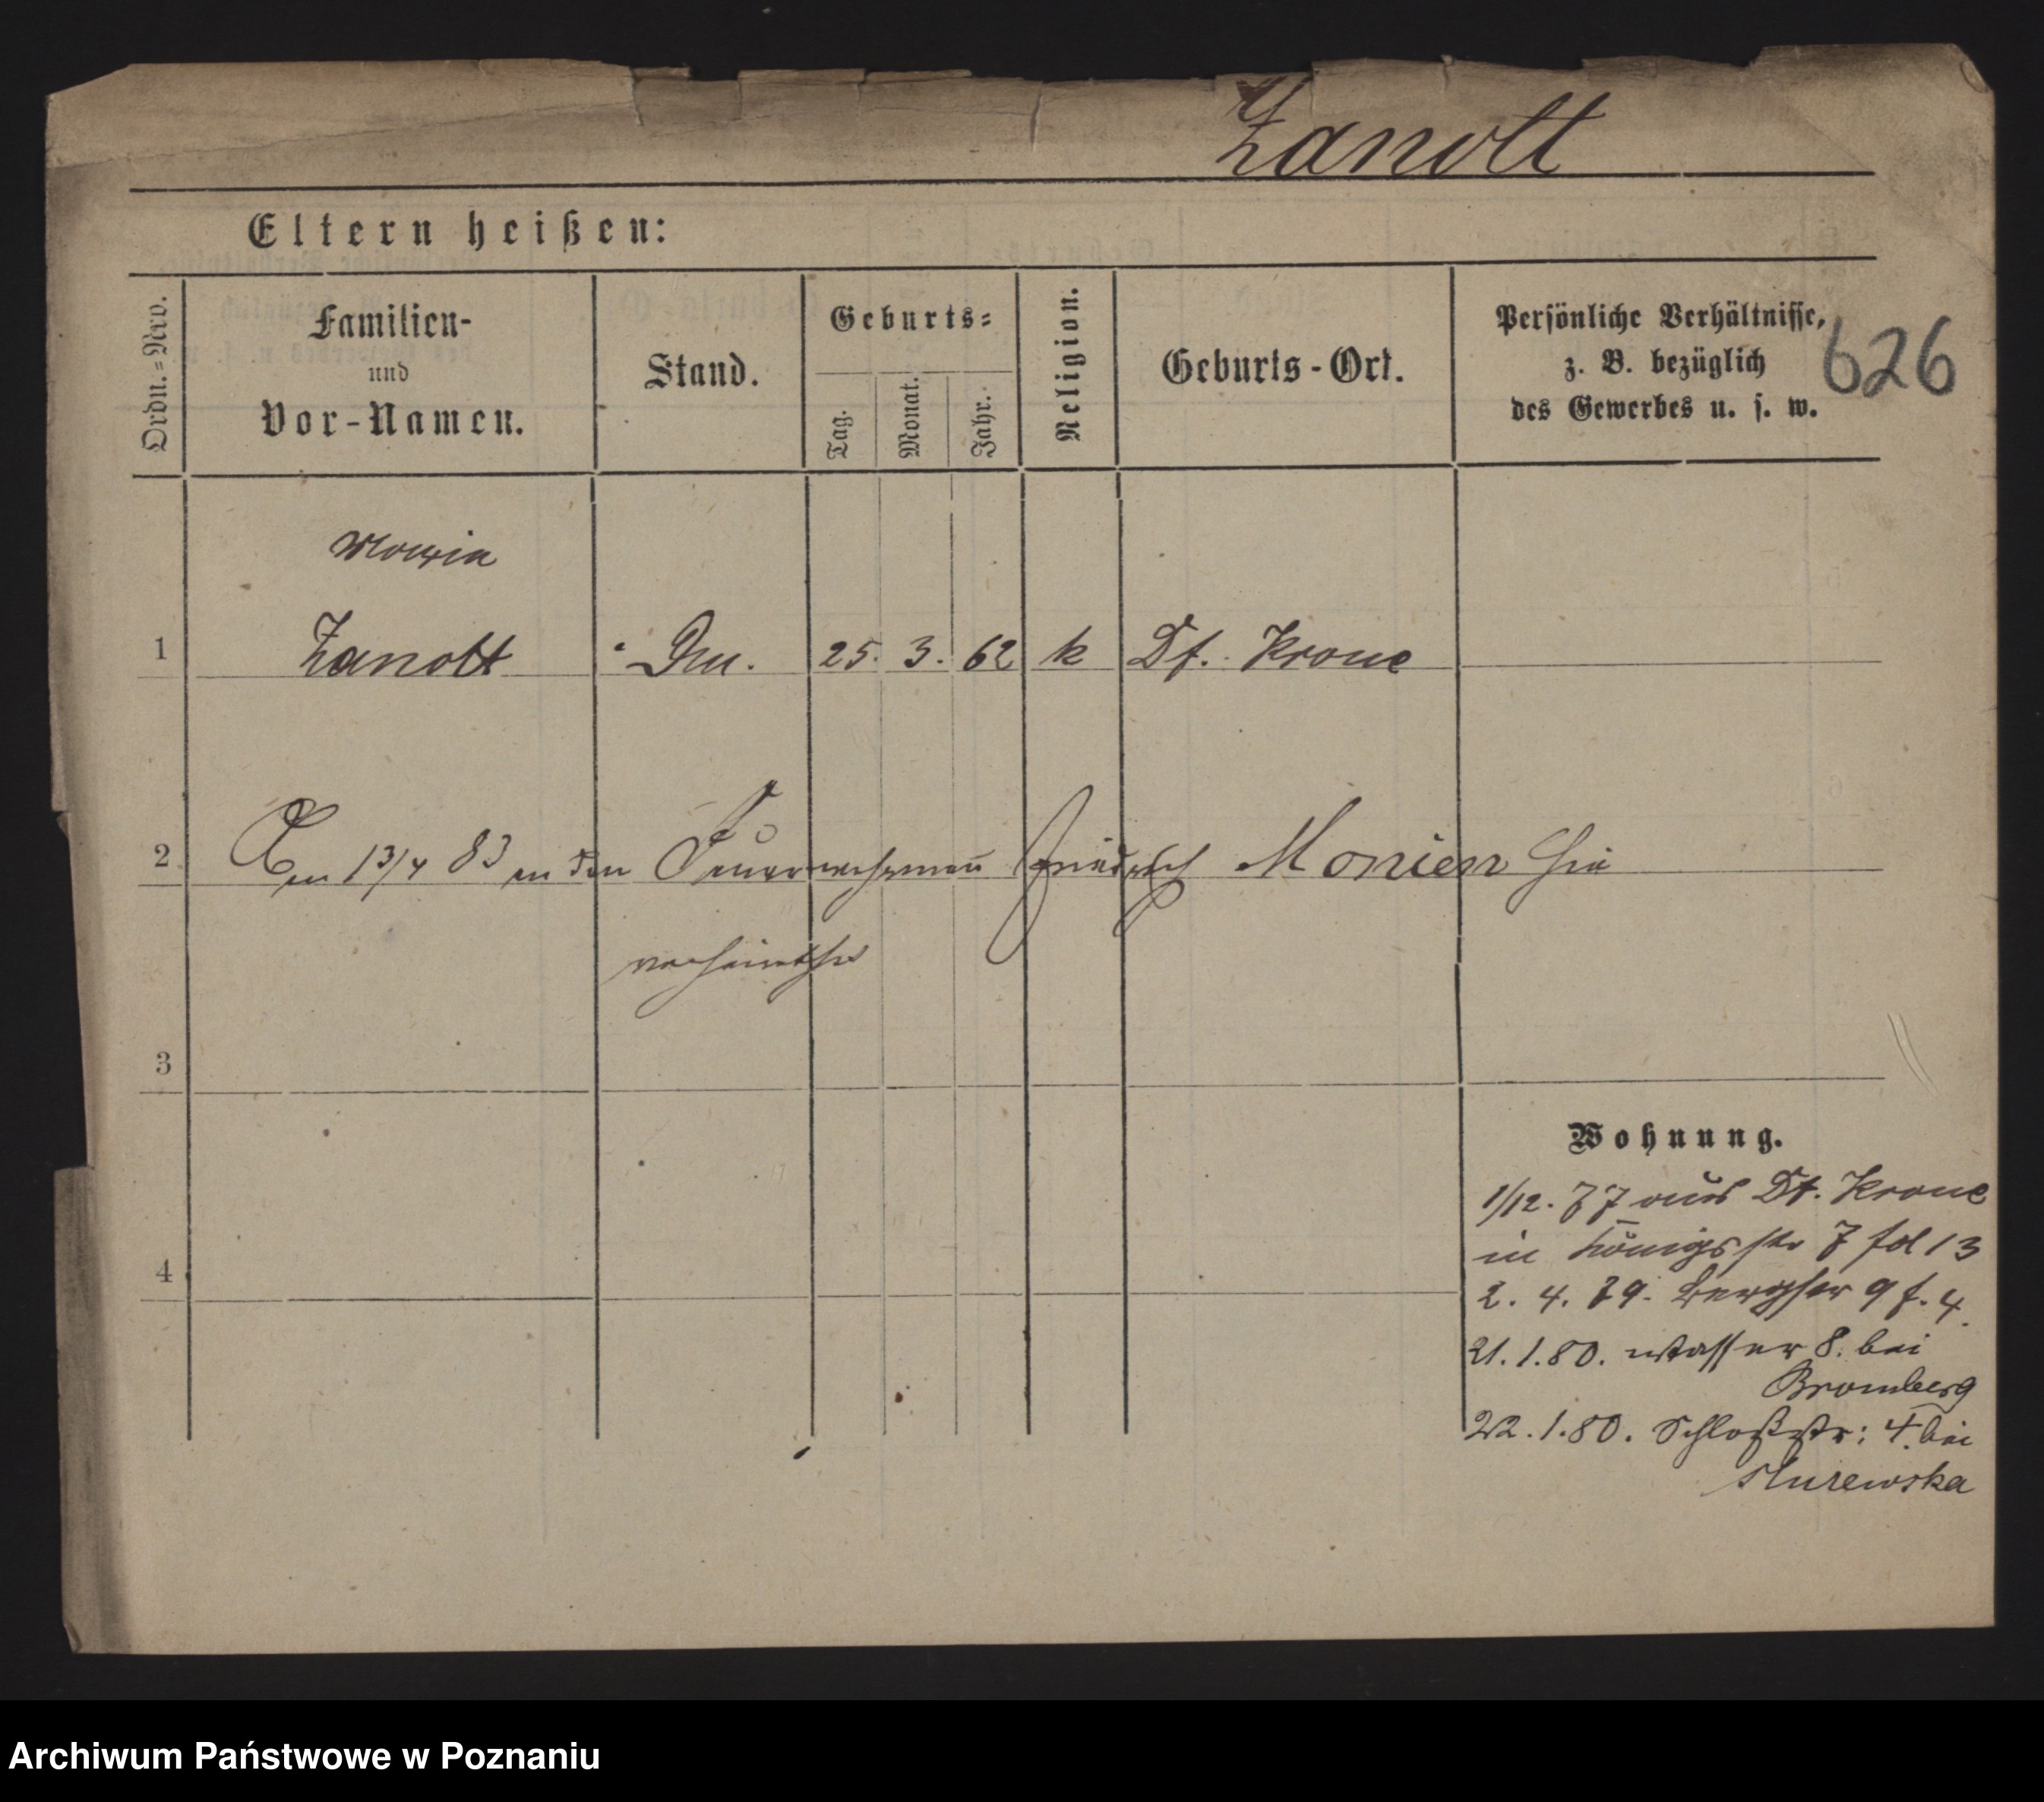 Zanolt
Eltern heißen:
Ordn.=Nro.
Familien-
und
Vor-Namen.
Stand.
Geburts=
Tag.
Monat.
Jahr.
Religion.
Geburts-Ort.
Persönliche Verhältnisse,
z. B. bezüglich
des Gewerbes u. s. w.
626
Maria
1 Zanolt 25. 3. 62 k Dt. Krone
2 Am 13/4 83 an den Feuerwehrmann Friedrich Monien hier
verheirathet
3
4
Wohnung.
1/12. 77 aus Dt. Krone
in Königsstr 7 fol 13
2. 4. 79. Bergstr 9 f. 4.
21. 1. 80. Wasser 8. bei
Bromberg
22. 1. 80. Schloßstr: 4. bei
Murewska
Archiwum Państwowe w Poznaniu